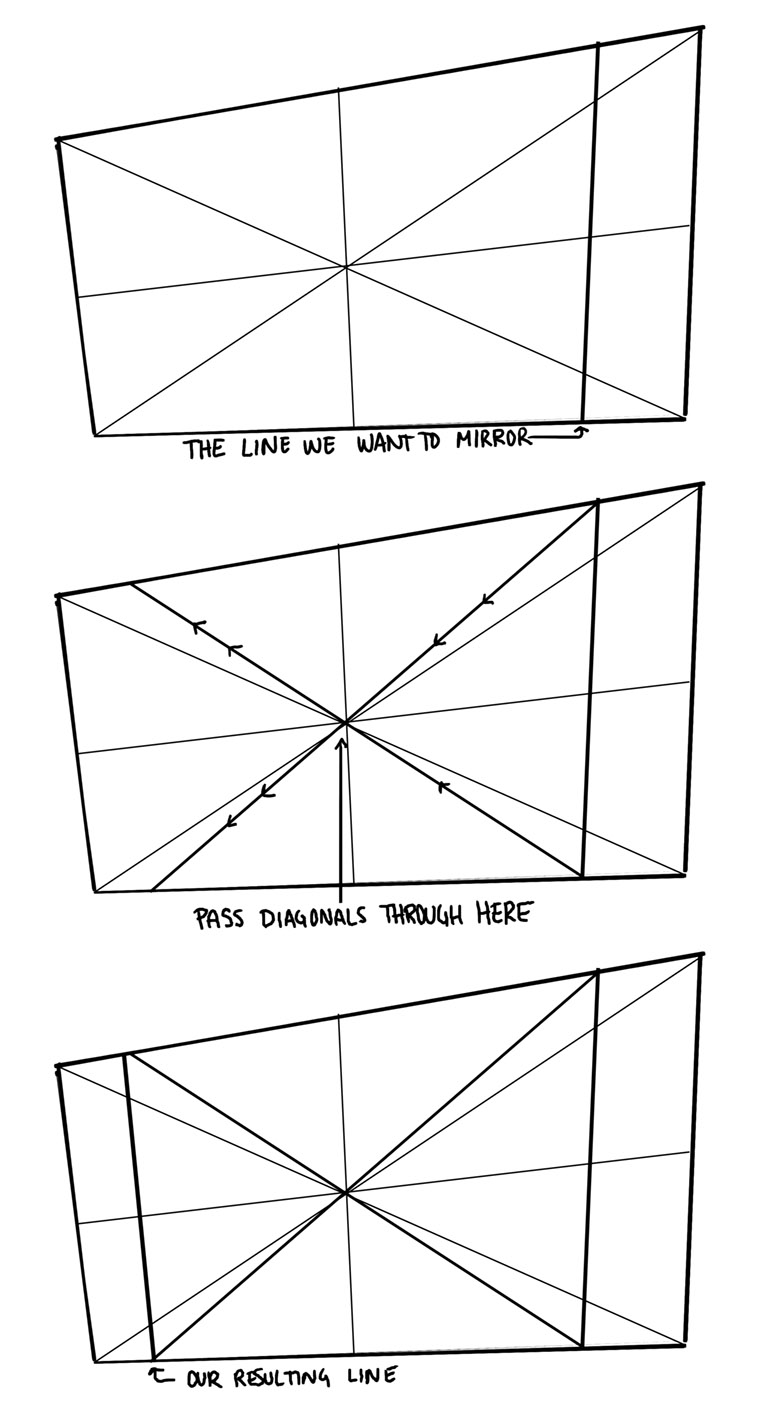 THE LINE WE WANT TO MIRROR
PASS DIAGONALS THROUGH HERE
OUR RESULTING LINE